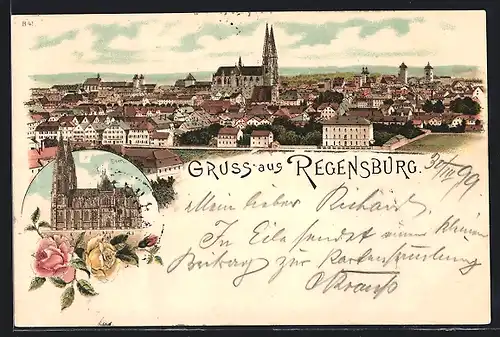 B 41.
GRUSS aus REGENSBURG.
30/III 99
Mein lieber Richard,
In Eile sendet einen kleinen
Beitrag zur Kartensammlung
Krauss